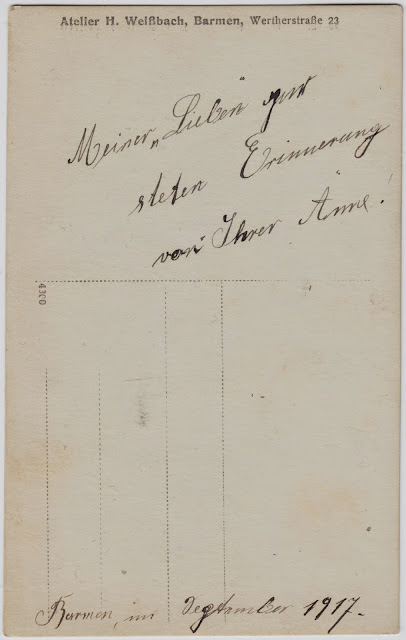 Atelier H. Weißbach, Barmen, Wertherstraße 23
Meiner „Lieben“ zur
steten Erinnerung
von Ihrer Änne.
4300
Barmen, im September 1917.